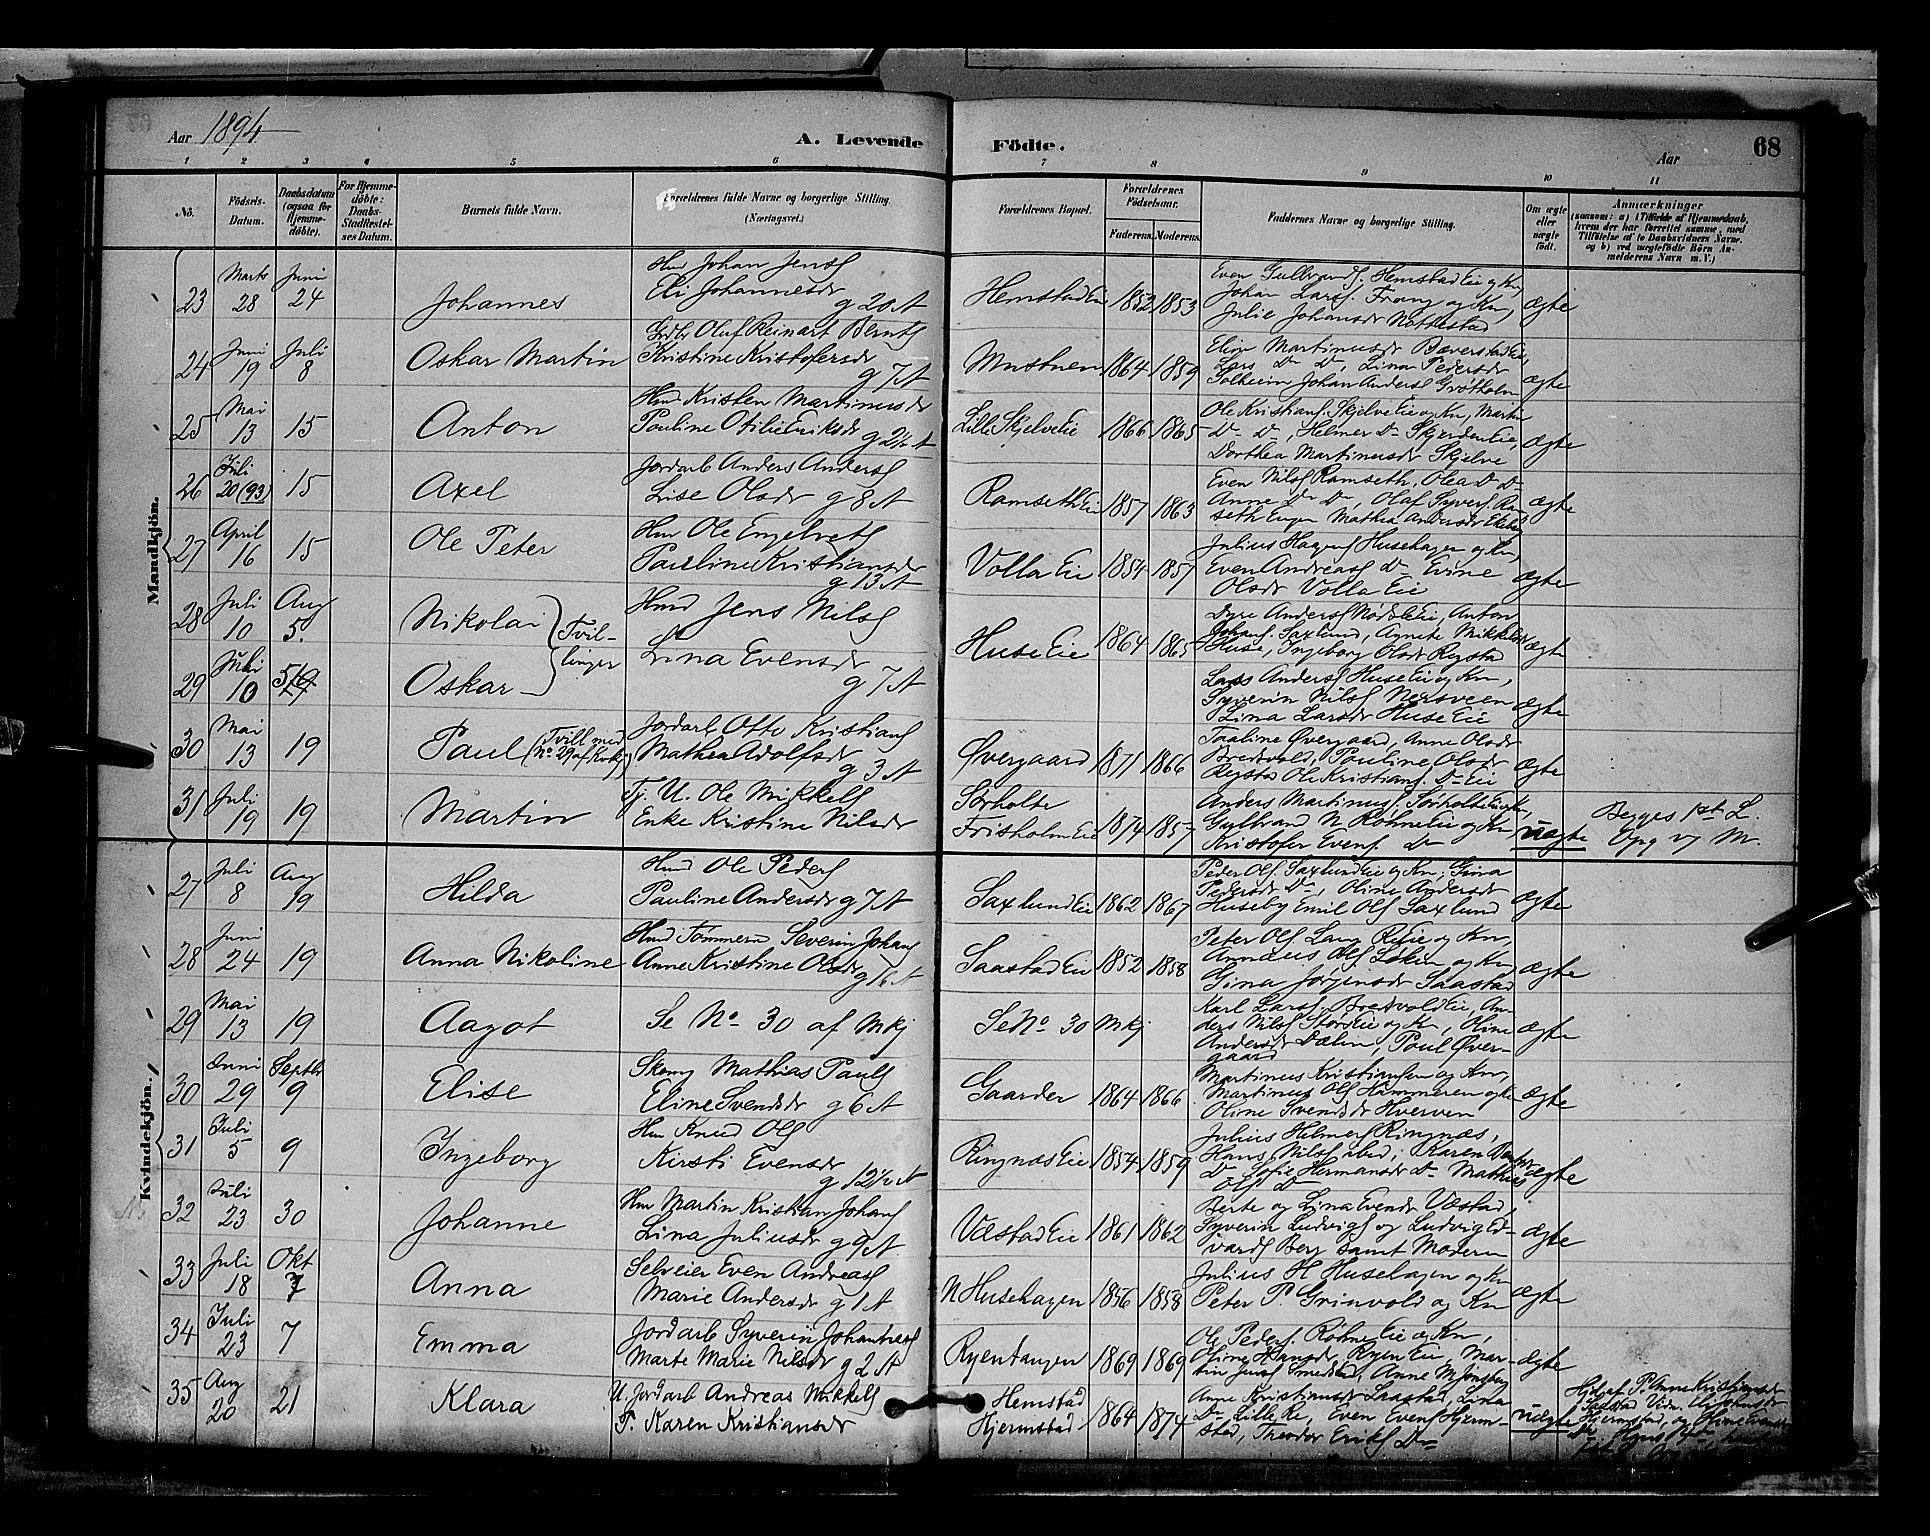 Aar 1894
A. Levende
Födte.
68
Aar
1 2 3 4 5 6 7 8 9 10 11
No.
Födsels-
Datum.
Daabsdatum
(ogsaa for
Hjemme-
döbte).
For Hjemme-
döbte:
Daabs-
Stadfæstel-
ses Datum.
Barnets fulde Navn.
Forældrenes fulde Navne og borgerlige Stilling.
(Næringsvei.)
Forældrenes Bopæl.
Forældrenes
Födselsaar.
Faderens. Moderens.
Faddernes Navne og borgerlige Stilling.
Om ægte
eller
uægte
födt.
Anmærkninger
(saasom: a) i Tilfælde af Hjemmedaab,
hvem der har forrettet samme, med
Tilföielse af to Daabsvidners Navne,
og b) ved uegtefödte Börn An-
melderens Navn m. V.)
Mandkjön.
23 Marts 28 Juni 24 Johannes
Hmd Johan Jensf
Eli Johannesdr
g 20 A
Hemstad Eie 1852 1853
Even Gulbrandf. Hemstad Eie og Kn,
Johan Larsf. Frang og Kn,
Julie Johansdr Nottestad
ægte
24 Juni 19 Juli 8 Oskar Martin
Grdbr Oluf Reinart Berntf
Kristine Kristofersdr
g 7 A
Mustuen 1864 1859
Eline Martinusdr Bæverstad Eie
Lars Do Do, Lina Pedersdr
Solheim Johan Andersf Grøtholm
ægte
25 Mai 13 15 Anton
Hmd Kristen Martinusdr
Pauline Otilie Eriksdr g 2½ A
Lille Skjelve Eie 1866 1865
Ole Kristianf. Skjelve Eie og Kn, Martin
Do Do, Helmer Do Skjerden Eie,
Dorthea Martinusdr Skjelve
ægte
26 Juli 20 (93) 15 Axel
Jordarb Anders Andersf
Lise Olsdr g 8 A
Ramseth Eie 1857 1863
Even Nilsf Ramseth, Olea Do Do
Anne Do Do, Olaf Syverf. Ram
seth Eugen Mathea Andersdr
ægte
27 April 16 15 Ole Peter
Hm Ole Engelretf
Pauline Kristiansdr
g 13 A
Volla Eie 1854 1857
Julius Haagenf Husehagen og Kn,
Even Andreasf Do Evine
Olsdr Volla Eie
ægte
28 Juli 10 Aug 5. Nikolai
Tvil-
linger
Hmd Jens Nilsf
Lina Evensdr
g 7 A
Huse Eie 1864 1865
Dyre Andersf Mødele Eie, Anton
Johanf. Saxlund, Agnete Mikkelsdr
Huse, Ingeborg Olsdr Regstad
ægte
29 Juli 10 5 Oskar
Lars Andersf Huse Eie og Kn,
Syverin Nilsf Nersveen
Lina Larsdr Huse Eie
ægte
30 Mai 13 19 Paul (Tvill. med
No 29 af Kvkj)
Jordarb Otto Kristianf
Mathea Adolfsdr
g 3 A
Øvergaard 1871 1866
Paaline Øvergaard, Anne Olsdr
Bredvold, Pauline Olsdr
Regstad Ole Kristianf. Do Eie
ægte
31 Juli 19 19 Martin
Tj. U. Ole Mikkelf
Enke Kristine Nilsdr
Sørholte
Frisholm Eie 1874 1857
Anders Martinusf. Sørholte Eie og Kn,
Gulbrand N Røhne Eie og Kn
Kristofer Evenf Do
uægte
Begges 1st L.
Opg v/ M.
Kvindekjön.
27 Juli 8 Aug 19 Hilda
Hmd Ole Pedersf
Pauline Andersdr g 7 A
Saxlund Eie 1862 1867
Peder Olf Saxlund Eie og Kn, Gina
Pedersdr Do, Oline Andersdr
Huseby Emil Olf Saxlund
ægte
28 Juni 24 19 Anna Nikoline
Hmd Tømmerm Severin Johanf
Anne Kristine Olsdr g 16 A
Saastad Eie 1852 1858
Peter Olf Lang Rø Eie og Kn,
Anneus Olf Løken og Kn
Gina Jørginsdr Saastad
ægte
29 Mai 13 19 Aagot
Se No 30 af Mkj
Se No 30 Mkj
Karl Larsf Bredvold Eie, An-
ders Nilsf Stor Eie og K, Oline
Andersdr Dælin, Poul Øver-
gaard
ægte
30 Juni 29 Septbr 9 Elise
Skomg Mathias Paulf
Eline Svendsdr g 6 A
Gaarder 1864 1866
Martinus Kristiansen og Kn,
Martinus Olf Hammeren og Kn
Oline Svendsdr Hverven
ægte
31 Juli 5 9 Ingeborg
Hm Knud Olf
Kirsti Evensdr
g 12½ A
Ringnæs Eie 1854 1859
Julius Helmerf Ringnæs,
Hans Nilsf ibid, Karen
Do Sofie Hermansdr Do Mathias
Olf Do
ægte
32 Juli 23 30 Johanne
Hm Martin Kristian Johanf
Lina Juliusdr g 9 A
Væstad Eie 1861 1862
Berte og Lina Evensdr Væstad,
Syverin Ludvigf og Ludvig Ed-
vardf Berg samt Modern
ægte
33 Juli 18 Okt 7 Anna
Selveier Even Andreasf
Marie Andersdr g 1 A
N Husehagen 1856 1858
Julius H Husehagen og Kn
Peter P. Grinvold og Kn
ægte
34 Juli 23 7 Emma
Jordarb Syverin Johannesf
Marte Marie Nilsdr g 2 A
Ryentangen 1869 1869
Ole Pedersf. Røhne Eie og Kn,
Oline Hansdr Ryen Eie, Mar-
tin Jensf Smedstad, Anne M Jonsberg
ægte
35 Aug 20 21 Klara
U. Jordarb Andreas Mikkelf
P. Karen Kristiansdr
Hemstad
Hjermstad 1864 1874
Anne Kristiansdr Saastad, Lina
Do Lille Re, Even Evenf Hjerm-
stad, Theodor Erikf Do
uægte
Hjd af P. Anne Kristiansdr
Saastad Vidn. Eli Johnsdr
Hjermstad, og Oline Evensdr